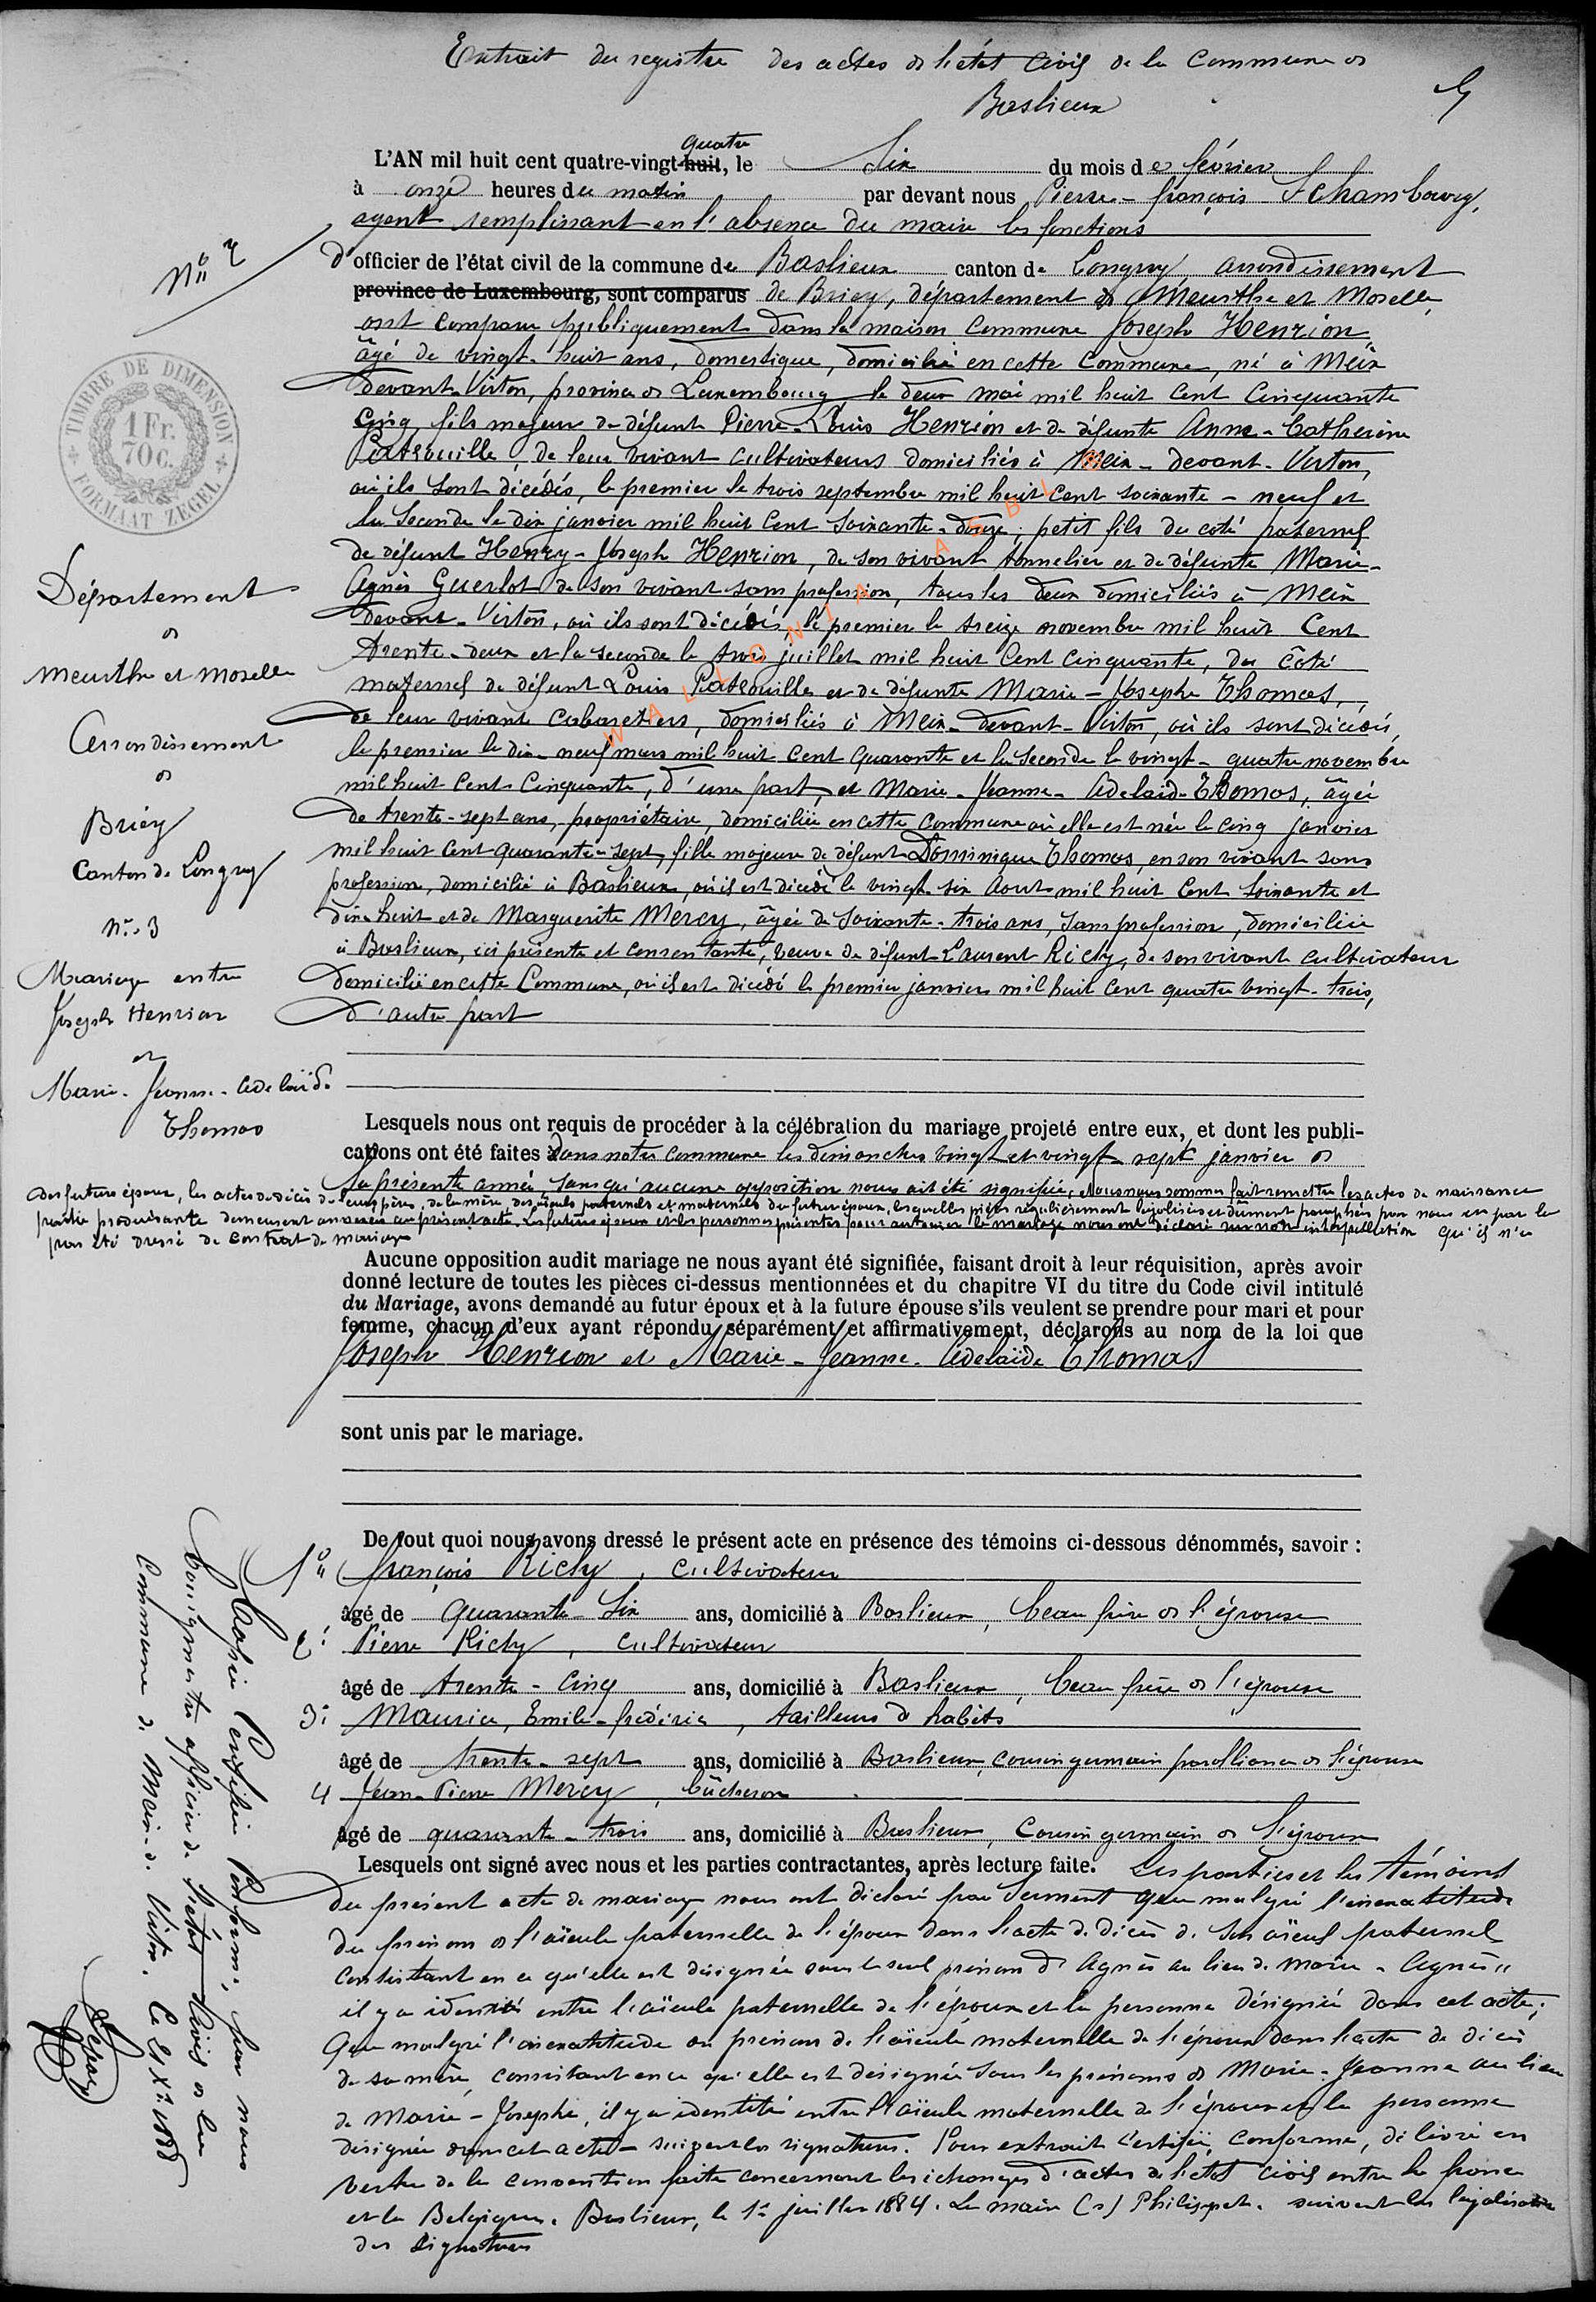 Extrait du registre des actes de l'état civil de la Commune de
Baslieux
quatre
L'AN mil huit cent quatre-vingt-huit, le six du mois de février
à onze heures du matin par devant nous Pierre-françois Schambourg,
agent remplissant en l'absence du maire les fonctions
N° 2
d'officier de l'état civil de la commune de Baslieux canton de Longwy arrondissement
province de Luxembourg, sont comparus de Briey, département de Meurthe et Moselle,
ont comparu publiquement dans la maison Commune Joseph Henrion,
âgé de vingt-huit ans, domestique, domicilié en cette Commune, né à Meix
devant-Virton, province de Luxembourg le deux mai mil huit Cent Cinquante
Cinq, fils majeur de défunt Pierre-Louis Henrion et de défunte Anne-Catherine
Patrouille, de leur vivant cultivateurs domiciliés à Meix-devant-Virton,
où ils sont décédés, le premier le trois septembre mil huit Cent soixante-neuf et
la Seconde le dix janvier mil huit Cent Soixante-douze; petit fils du coté paternel
de défunt Henry-Joseph Henrion, de son vivant tonnelier et de défunte Marie-
Agnès Guerlot de son vivant sans profession, tous les deux domiciliés à Meix
devant-Virton, où ils sont décédés, le premier le treize novembre mil huit Cent
trente-deux et la seconde le trois juillet mil huit Cent Cinquante, du côté
maternel de défunt Louis Patrouille et de défunte Marie-Josephe Thomas,
de leur vivant Cabaretiers, domiciliés à Meix-devant-Virton, où ils sont décédés,
le premier le dix-neuf mars mil huit Cent quarante et la Seconde le vingt-quatre novembre
mil huit Cent Cinquante, d'une part, et Marie-Jeanne-Adelaïde Thomas, âgée
de trente-sept ans, propriétaire, domiciliée en cette Commune où elle est née le Cinq janvier
mil huit Cent quarante-sept, fille majeure de défunt Dominique Thomas, en son vivant sans
profession, domicilié à Baslieux, où il est décédé le vingt-six Aout mil huit Cent Soixante et
dix-huit et de Marguerite Mercy, âgée de Soixante-trois ans, Sans profession, domiciliée
à Baslieux, ici présente et consentante, veuve de défunt Laurent Richy, de son vivant cultivateur
domicilié en cette Commune, où il est décédé le premier janvier mil huit Cent quatre vingt-trois,
d'autre part
TIMBRE DE DIMENSION
1 Fr.
70 C.
FORMAAT ZEGEL
Département
de
Meurthe et Moselle
Arrondissement
de
Briey
Canton de Longwy
N° 3
Mariage entre
Joseph Henrion
et
Marie-Jeanne-Adelaïde
Thomas
WALLONIA ASBL
Lesquels nous ont requis de procéder à la célébration du mariage projeté entre eux, et dont les publi-
cations ont été faites dans notre commune les dimanches vingt et vingt-sept janvier de
la présente année, sans qu'aucune opposition nous ait été signifiée; Nous nous sommes fait remettre les actes de naissance
des futurs époux, les actes de décès de leurs pères, de la mère, des aïeuls paternels et maternels du futur époux, lesquelles pièces régulièrement légalisées et dûment paraphées par nous et par la
partie produisante demeurent annexées au présent acte. Les futurs époux et les personnes présentes pour autoriser le mariage nous ont déclaré sur notre interpellation qu'il n'a
pas été dressé de contrat de mariage
Aucune opposition audit mariage ne nous ayant été signifiée, faisant droit à leur réquisition, après avoir
donné lecture de toutes les pièces ci-dessus mentionnées et du chapitre VI du titre du Code civil intitulé
du Mariage, avons demandé au futur époux et à la future épouse s'ils veulent se prendre pour mari et pour
femme, chacun d'eux ayant répondu séparément et affirmativement, déclarons au nom de la loi que
Joseph Henrion et Marie-Jeanne-Adelaïde Thomas
sont unis par le mariage.
De tout quoi nous avons dressé le présent acte en présence des témoins ci-dessous dénommés, savoir :
1° françois Richy, Cultivateur
âgé de quarante-six ans, domicilié à Baslieux, beau frère de l'épouse
2° Pierre Richy, Cultivateur
âgé de trente-cinq ans, domicilié à Baslieux, beau frère de l'épouse
3° Maurice, Emile-frédéric, tailleur d'habits
âgé de trente-sept ans, domicilié à Baslieux, cousin germain par alliance de l'épouse
4 Jean-Pierre Mercy, bûcheron
âgé de quarante-trois ans, domicilié à Baslieux, Cousin germain de l'épouse
Lesquels ont signé avec nous et les parties contractantes, après lecture faite. Les parties et les témoins
du présent acte de mariage nous ont déclaré par Serment que malgré l'inexactitude
du prénom de l'aïeule paternelle de l'époux dans l'acte de décès de son aïeul paternel
consistant en ce qu'elle est désignée sous le seul prénom d'Agnès au lieu de Marie-Agnès"
il y a identité entre l'aïeule paternelle de l'époux et la personne désignée dans cet acte;
Que malgré l'inexactitude du prénom de l'aïeule maternelle de l'époux dans l'acte de décès
de sa mère, consistant en ce qu'elle est désignée sous les prénoms de Marie-Jeanne au lieu
de Marie-Josephe, il y a identité entre l'aïeule maternelle de l'époux et la personne
désignée dans cet acte - suivent les signatures. Pour extrait certifié conforme, délivré en
vertu de la convention faite concernant les échanges d'actes de l'état civil entre la france
et la Belgique. Baslieux, le 1er juillet 1884. Le maire (s) Philippet. suivent les légalisations
des signatures
Copie Certifiée Conforme, par nous
bourgmestre officier de l'état Civil de la
Commune de Meix-d. Virton.